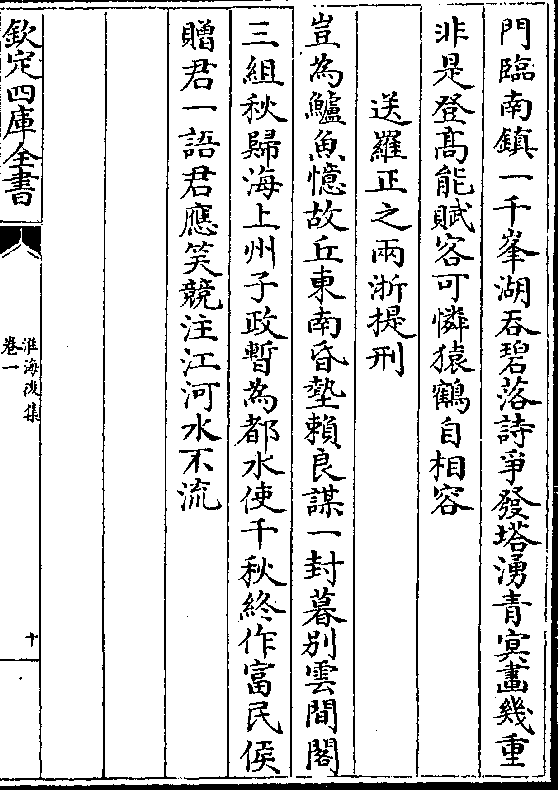 門臨南鎮一千峯湖吞碧落詩爭發塔湧青㝠畫幾重
非是登髙能賦客可憐猿鶴自相容
送羅正之兩浙提刑
豈為鱸魚憶故丘東南昏墊賴良謀一封暮别雲間閣
三組秋歸海上州子政暫為都水使千秋終作富民侯
贈君一語君應笑競注江河水不流
欽定四庫全書
淮海後集
卷一
十